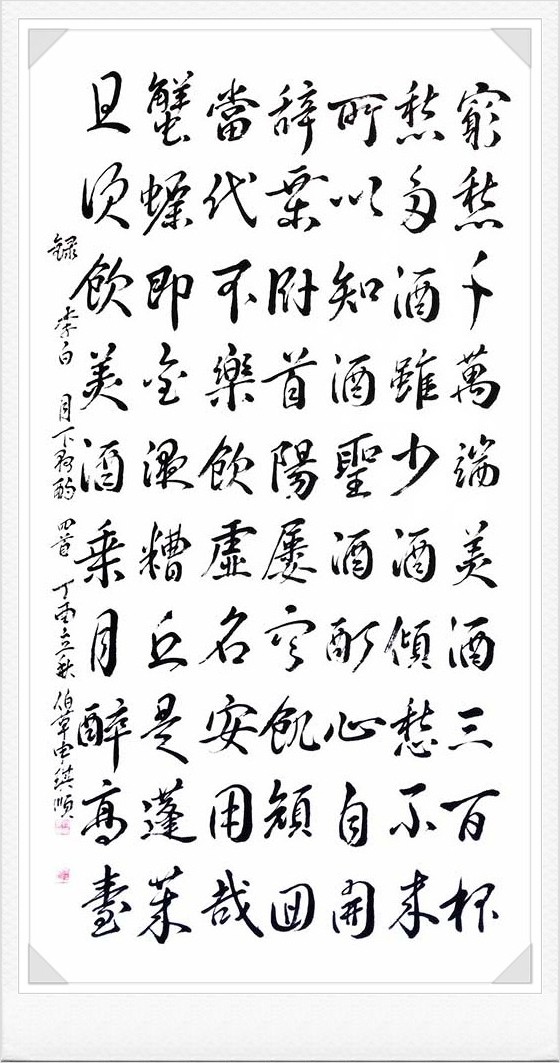 窮愁千萬端美酒三百杯
愁多酒雖少酒傾愁不来
所以知酒聖酒酣心自開
辭粟臥首陽屡空飢顔回
當代不樂飲虚名安用哉
蟹螯即金液糟丘是蓬莱
且須飲美酒乗月醉高臺
録 李白 月下獨酌 四首 丁酉立秋 伯草申順